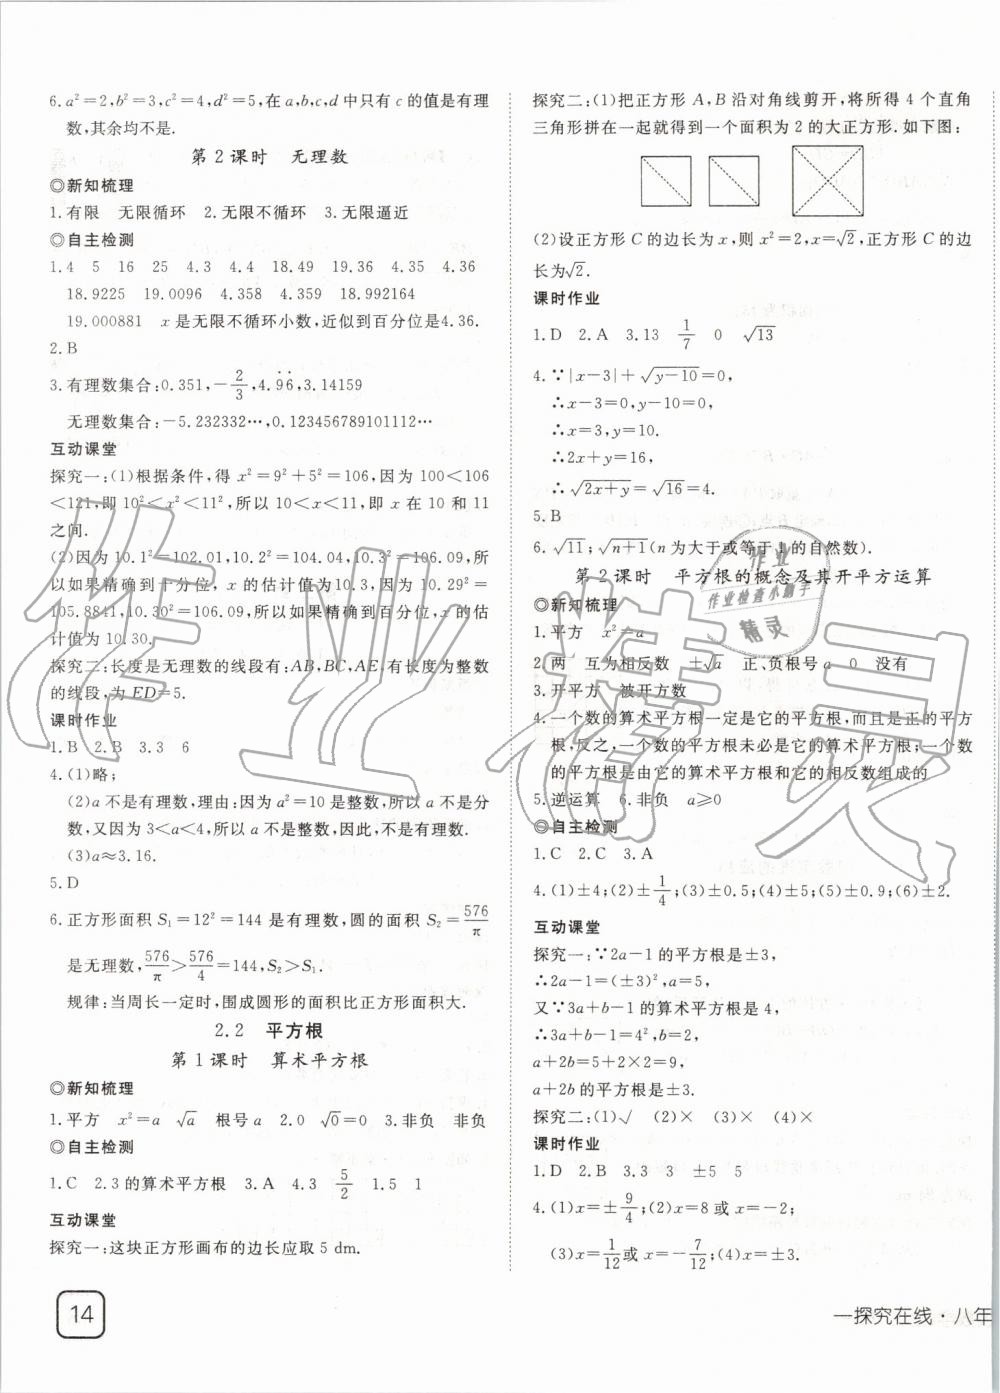 6.a²=2,b²=3,c²=4,d²=5,在a,b,c,d中只有c的值是有理
数,其余均不是.
第2课时 无理数
◎新知梳理
1.有限 无限循环 2.无限不循环 3.无限逼近
◎自主检测
1.4 5 16 25 4.3 4.4 18.49 19.36 4.35 4.36
18.9225 19.0096 4.358 4.359 18.992164
19.000881 x是无限不循环小数,近似到百分位是4.36.
2.B
3.有理数集合:0.351,-2/3,4.9̇6̇,3.14159
无理数集合:-5.232332…,0.123456789101112…
互动课堂
探究一:(1)根据条件,得x²=9²+5²=106,因为100<106
<121,即10²<x²<11²,所以10<x<11,即x在10和11
之间.
(2)因为10.1²=102.01,10.2²=104.04,10.3²=106.09,所
以如果精确到十分位,x的估计值为10.3,因为10.29²=
105.8841,10.30²=106.09,所以如果精确到百分位,x的估
计值为10.30.
探究二:长度是无理数的线段有:AB,BC,AE,有长度为整数
的线段,为ED=5.
课时作业
1.B 2.B 3.3 6
4.(1)略;
(2)a不是有理数,理由:因为a²=10是整数,所以a不是分
数,又因为3<a<4,所以a不是整数,因此,不是有理数.
(3)a≈3.16.
5.D
6.正方形面积S₁=12²=144是有理数,圆的面积S₂=576/π
是无理数,576/π>576/4=144,S₂>S₁.
规律:当周长一定时,围成圆形的面积比正方形面积大.
2.2 平方根
第1课时 算术平方根
◎新知梳理
1.平方 x²=a √a 根号a 2.0 √0=0 3.非负 非负
◎自主检测
1.C 2.3的算术平方根 3.A 4.3 5/2 1.5 1
互动课堂
探究一:这块正方形画布的边长应取5 dm.
14
探究二:(1)把正方形A,B沿对角线剪开,将所得4个直角
三角形拼在一起就得到一个面积为2的大正方形.如下图:
(2)设正方形C的边长为x,则x²=2,x=√2,正方形C的边
长为√2.
课时作业
1.D 2.A 3.13 1/7 0 √13
4.∵|x-3|+√(y-10)=0,
∴x-3=0,y-10=0.
∴x=3,y=10.
∴2x+y=16,
∴√(2x+y)=√16=4.
5.B
6.√11;√(n+1)(n为大于或等于1的自然数).
第2课时 平方根的概念及其开平方运算
◎新知梳理
1.平方 x²=a
2.两 互为相反数 ±√a 正、负根号a 0 没有
3.开平方 被开方数
4.一个数的算术平方根一定是它的平方根,而且是正的平方
根,反之,一个数的平方根未必是它的算术平方根;一个数
的平方根是由它的算术平方根和它的相反数组成的
5.逆运算 6.非负 a≥0
◎自主检测
1.C 2.C 3.A
4.(1)±4;(2)±1/4;(3)±0.5;(4)±5;(5)±0.9;(6)±2.
互动课堂
探究一:∵2a-1的平方根是±3,
∴2a-1=(±3)²,a=5,
又∵3a+b-1的算术平方根是4,
∴3a+b-1=4²,b=2,
a+2b=5+2×2=9,
a+2b的平方根是±3.
探究二:(1)√ (2)× (3)× (4)×
课时作业
1.D 2.B 3.3 3 ±5 5
4.(1)x=±9/4;(2)x=8或x=-2;
(3)x=1/12或x=-7/12;(4)x=±3.
一探究在线·八年
作业精灵
作业
作业检查小助手
精灵